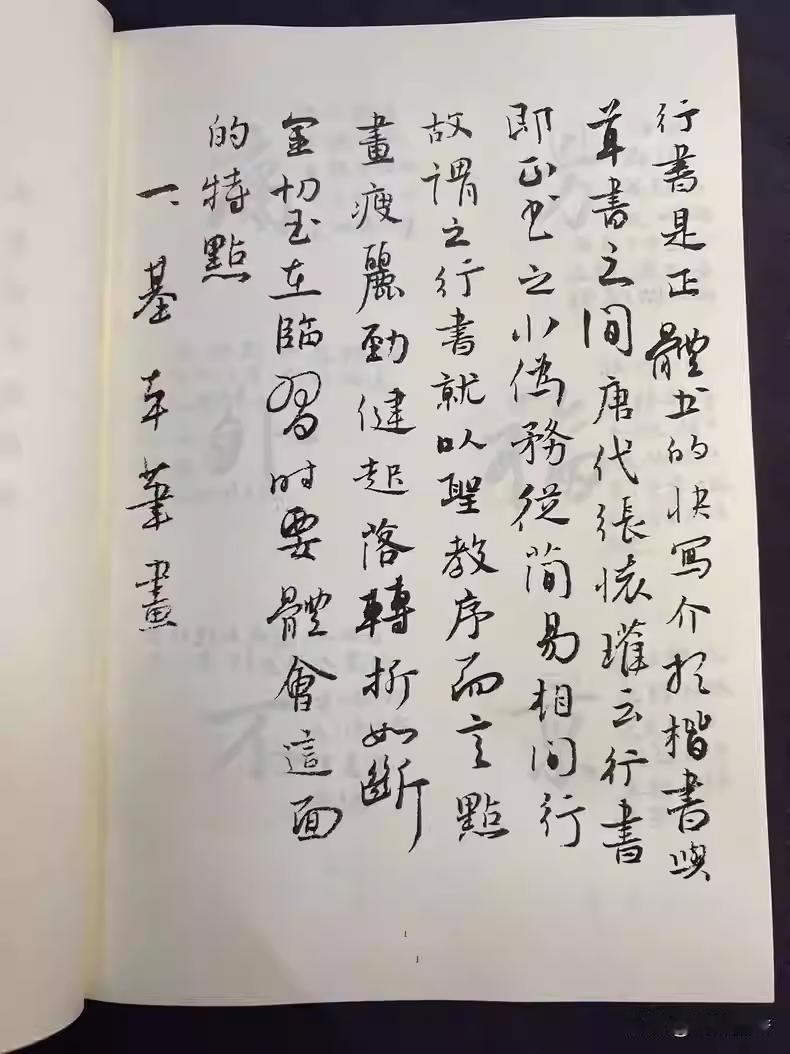 行書是正體书的快写介於楷書與
草書之间唐代張懷瓘云行書
即正书之小偽務從简易相间行
故謂之行書就以聖教序而言點
畫瘦麗勁健起落轉折如斷
金切玉在臨習时要體會這面
的特點
一、基本筆畫
1
1